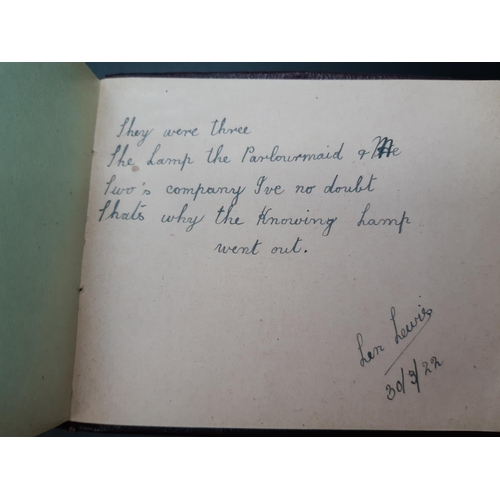 They were three
The Lamp the Parlourmaid & Me
Two's company I've no doubt
Thats why the Knowing Lamp
went out.
Len Lewis
30/3/22